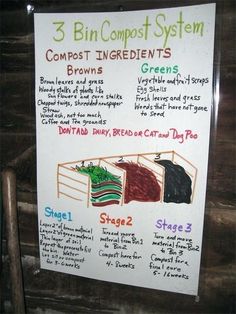 3 Bin Compost System
Compost Ingredients
Browns
Brown leaves and grass
Woody stalks of plants like
Sun flowers and corn stalks
Chopped twigs, shredded newspaper
Straw
Wood ash, not too much
Coffee and Tea grounds
Greens
Vegetable and fruit scraps
Egg Shells
Fresh leaves and grass
Weeds that have not gone
to seed
Don't Add Dairy, Bread or Cat and Dog Poo
1
2
3
Stage 1
Layer 2" of brown material
Layer 2" of green material
Thin layer of soil
Repeat the process to fill
the bin. Water
Let sit or compost
for 3-6 weeks
Stage 2
Turn and move
material from Bin 1
to Bin 2
Compost here for
4- weeks
Stage 3
Turn and move
material from Bin 2
to Bin 3
Compost for a
final cure
5-16 weeks